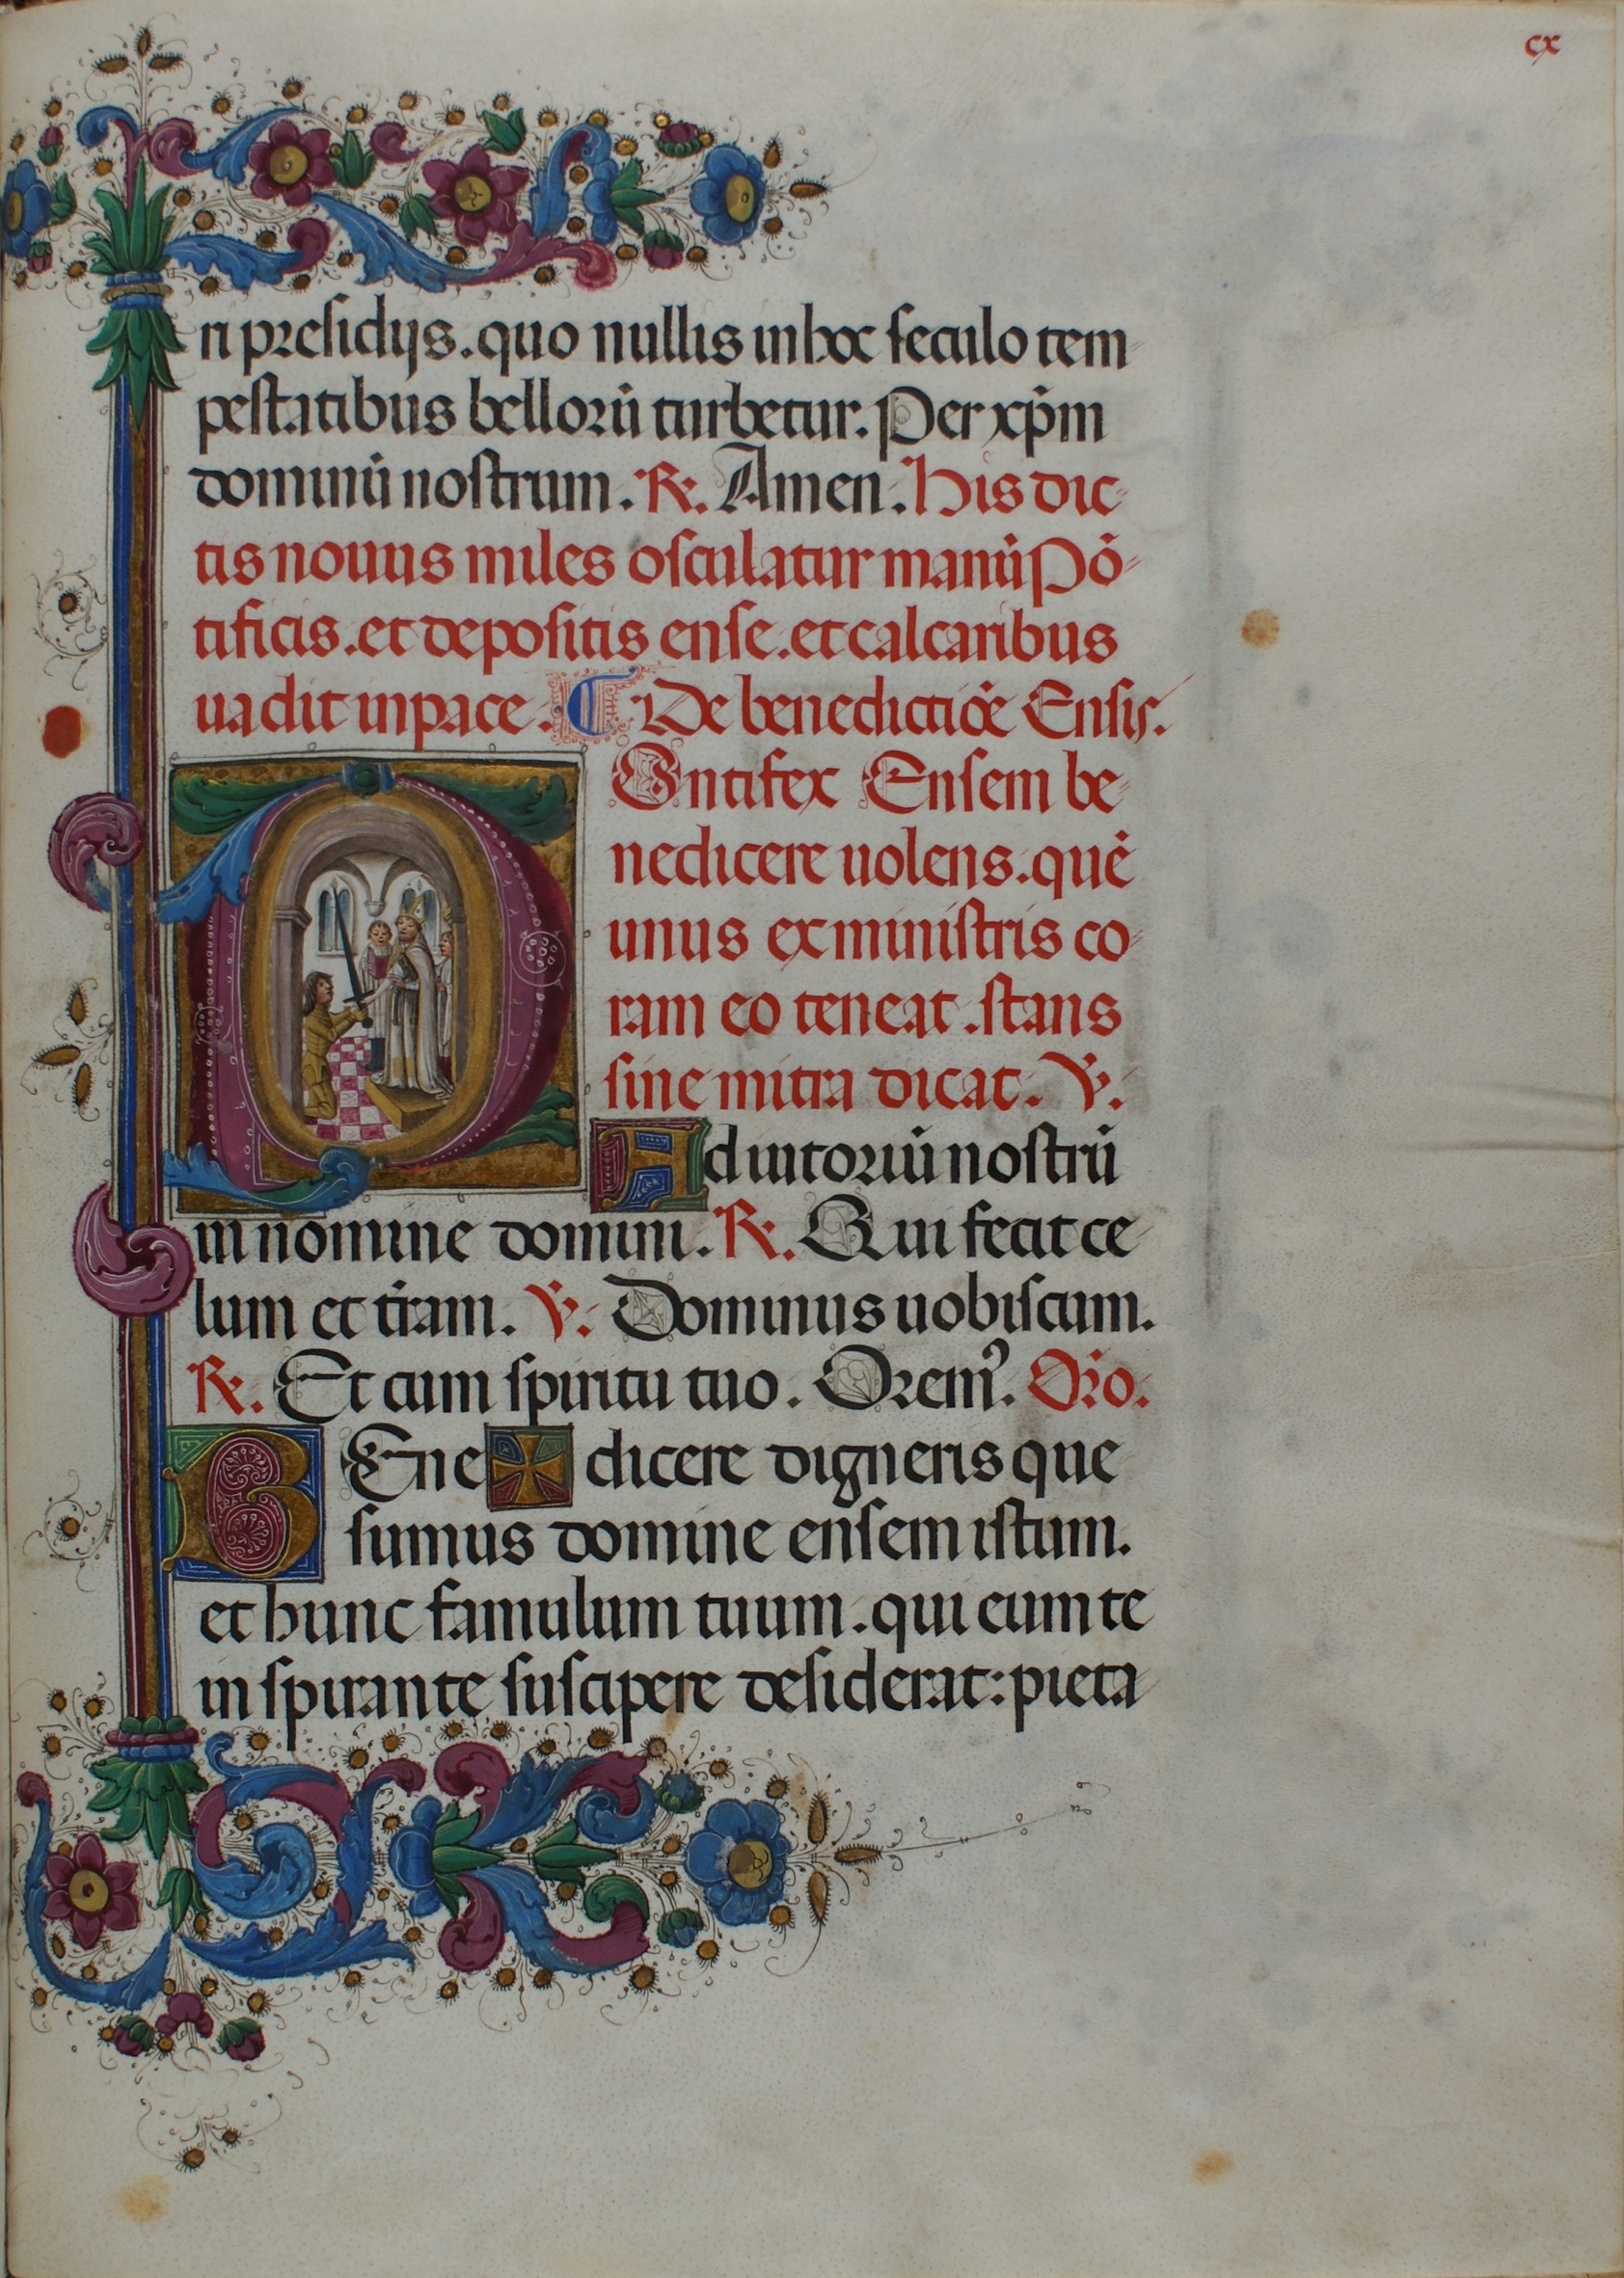 cx
ri presidijs. quo nullis in hoc seculo tem
pestatibus bellorū turbetur. Per xp̄m
dominū nostrum. ℟. Amen. His dic
tis nouus miles osculatur manū Pō
tificis. et depositis ense. et calcaribus
uadit in pace. C De benedictiōe Ensis.
Ontifex Ensem be
nedicere uolens. quē
unus ex ministris co
ram eo teneat. stans
sine mitra dicat. ℣.
Adiutoriū nostrū
in nomine domini. ℟. Qui fecit ce
lum et t̄ram. ℣. Dominus uobiscum.
℟. Et cum spiritu tuo. Oremꝰ. Or̄o.
BEne ✠ dicere digneris que
sumus domine ensem istum.
et hunc famulum tuum. qui eum te
inspirante suscipere desiderat: pieta